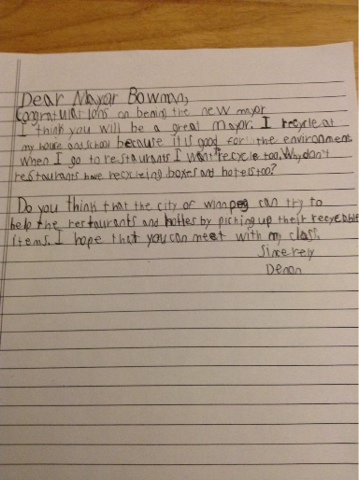 Dear Mayor Bowman,
Congratulations on benig the new mayor
I think you will be a great mayor. I recycle at
my house and school because it is good for the environment
When I go to restaurants I want to recycle too. Why don't
restaurants have recycleing boxes and hotels too?
Do you think that the city of winnpeg can try to
help the restaurants and hotles by picking up their recyclable
items. I hope that you can meet with my class.
Sincerely